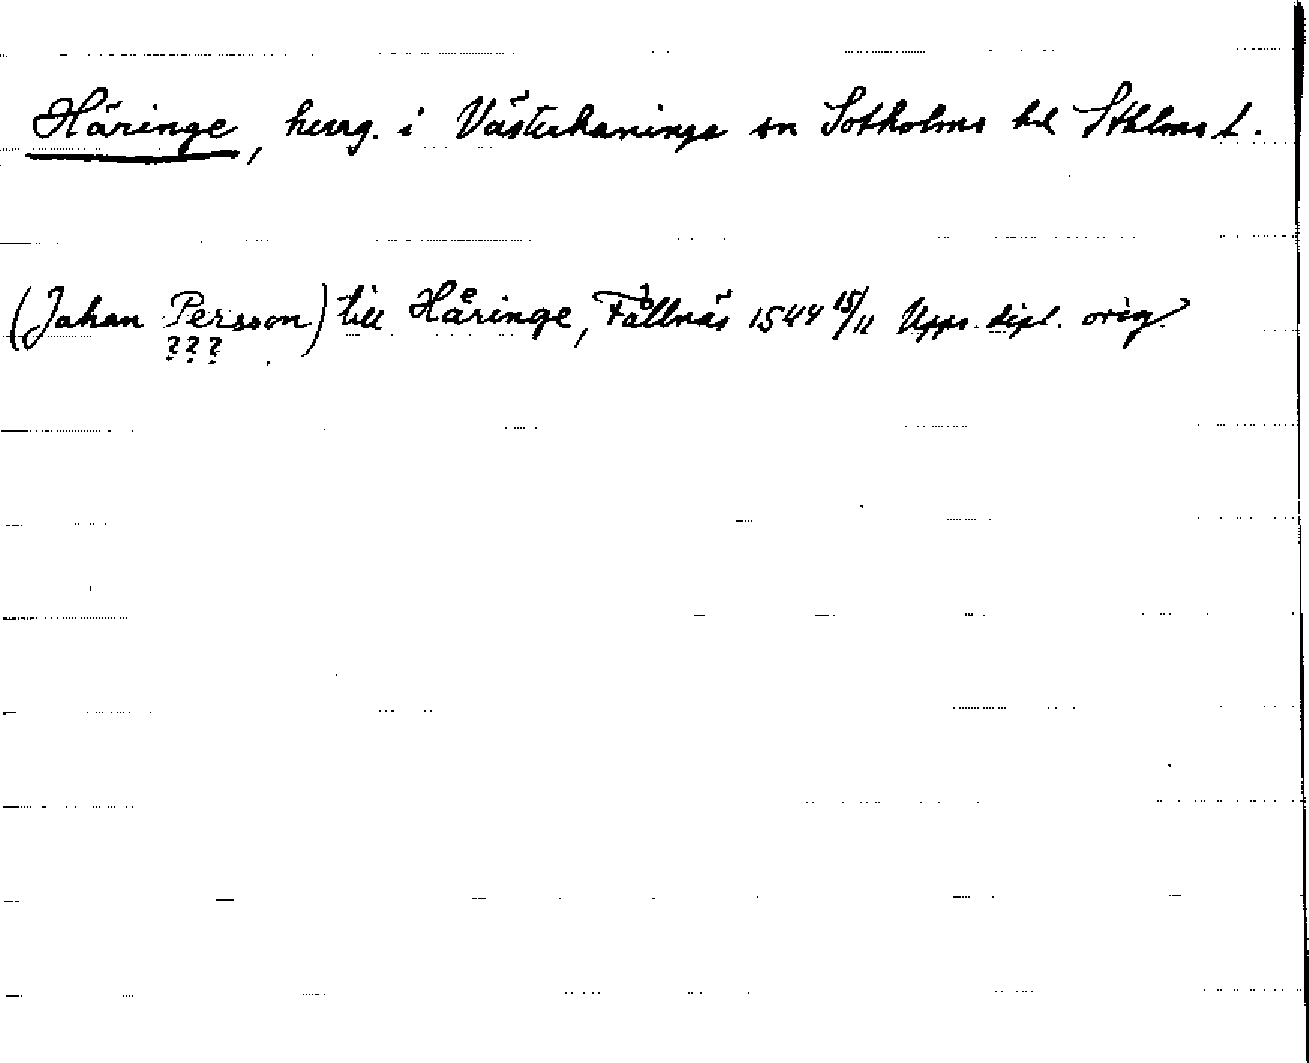 Häringe, herrg. i Västerhaninge sn Sotholms hd Sthlms l.
(Johan Persson) till Håringe, Fållnäs 1544 15/11 Upps. dipl. orig.
???